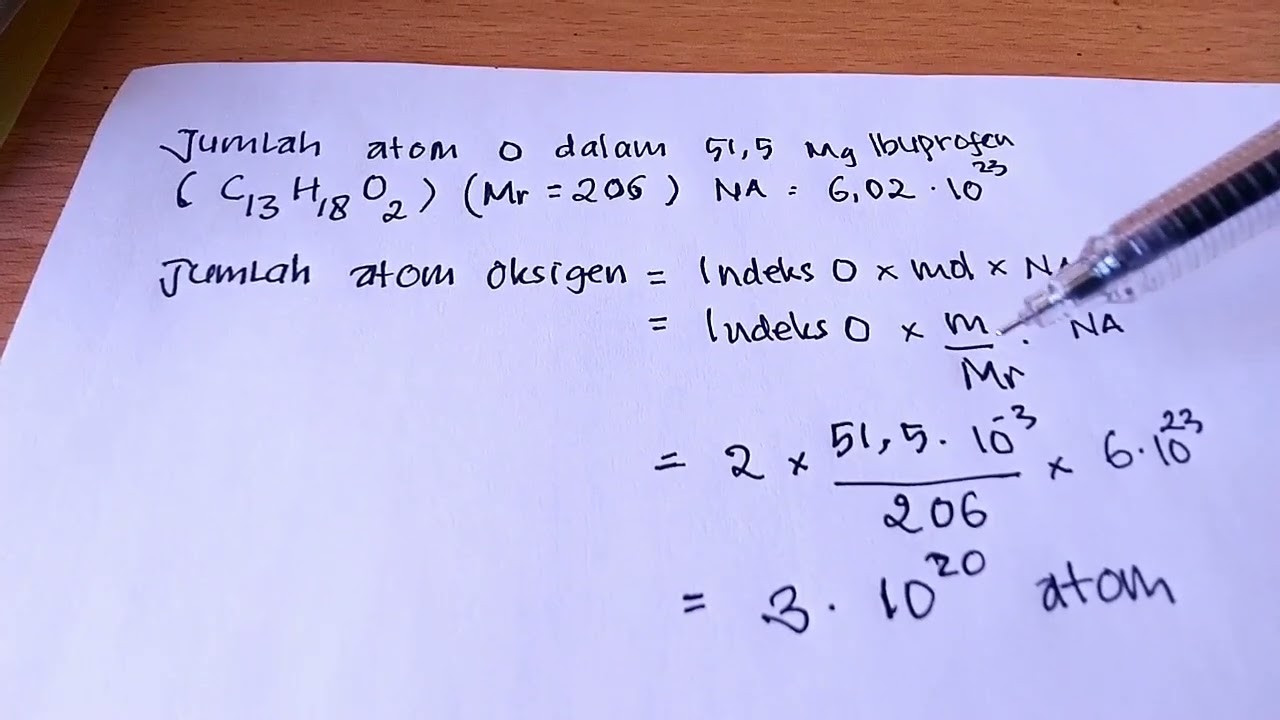 Jumlah atom O dalam 51,5 mg Ibuprofen
( C13 H18 O2 ) ( Mr = 206 ) NA = 6,02 · 10^23
Jumlah atom Oksigen = Indeks O x mol x NA
= Indeks O x m/Mr · NA
= 2 x 51,5 · 10^-3 / 206 x 6 · 10^23
= 3 · 10^20 atom